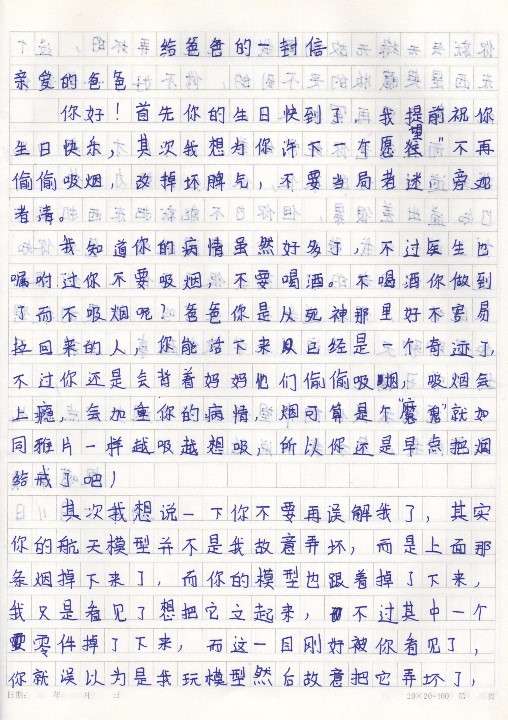 给爸爸的一封信
亲爱的爸爸
你好！首先你的生日快到了，我提前祝你
生日快乐，其次我想为你许下一个愿望“不再
偷偷吸烟，改掉坏脾气，不要当局者迷，旁观
者清。
我知道你的病情虽然好多了，不过医生也
嘱咐过你不要吸烟，不要喝酒。不喝酒你做到
了而不吸烟呢？爸爸你是从死神那里好不容易
拉回来的人，你能活下来以已经是一个奇迹了，
不过你还是会背着妈妈他们偷偷吸烟，吸烟会
上瘾，会加重你的病情，烟可算是个“魔鬼”就如
同雅片一样越吸越想吸，所以你还是早点把烟
给戒了吧！
其次我想说一下你不要再误解我了，其实
你的航天模型并不是我故意弄坏，而是上面那
条烟掉下来了，而你的模型也跟着掉了下来，
我又是看见了想把它立起来，不过其中一个
零件掉了下来，而这一目刚好被你看见了，
你就误以为是我玩模型然后故意把它弄坏了，
日期： 年 月 日 20×20=400 第 页